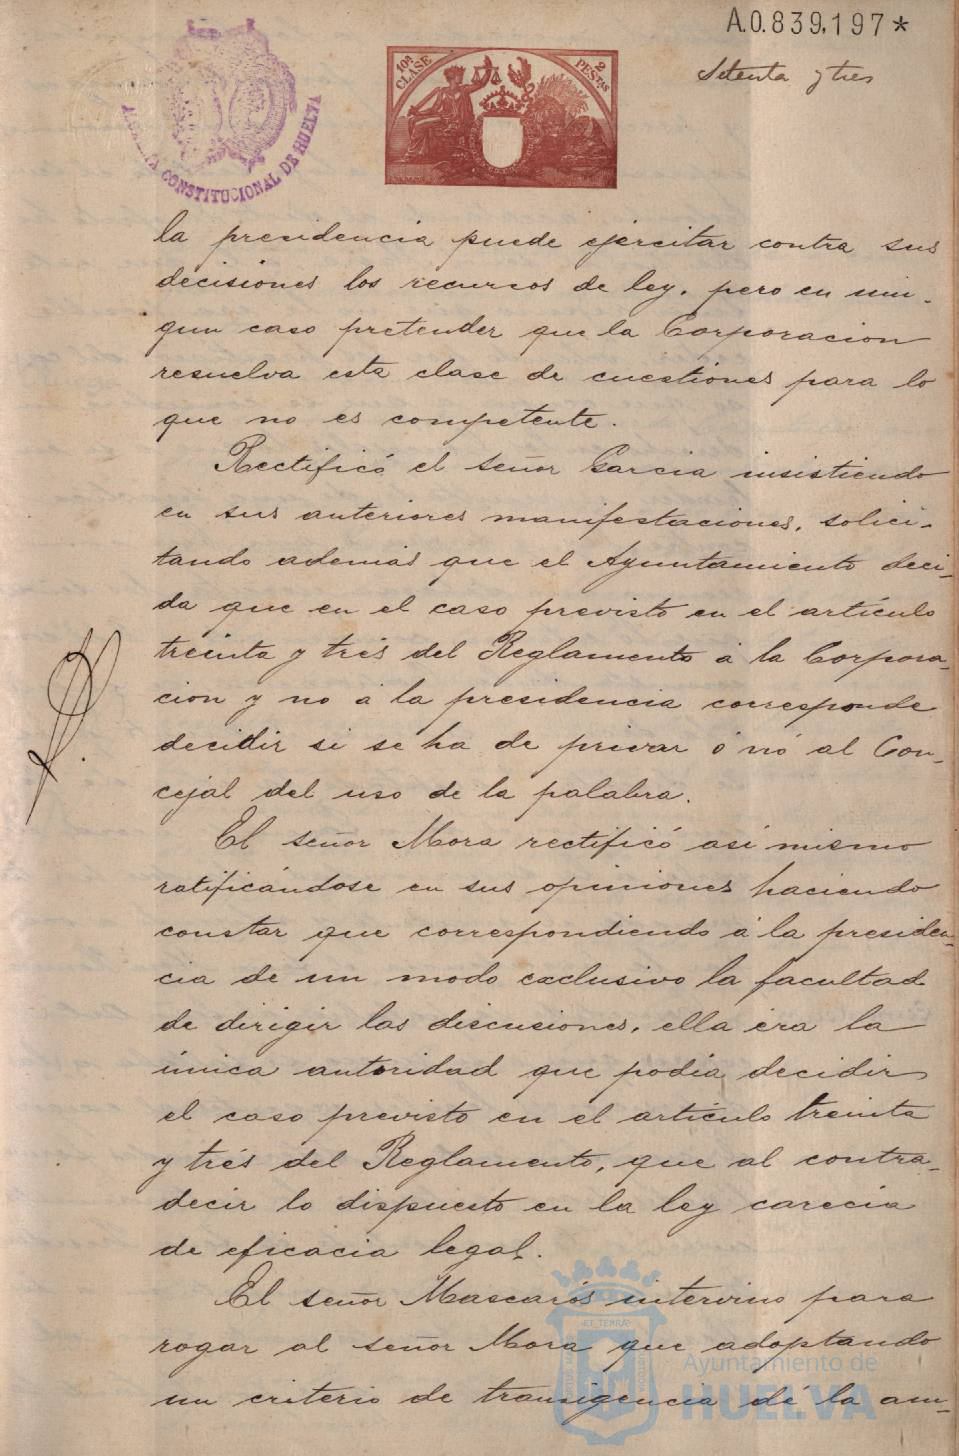 A.0.839,197*
Setenta y tres
10ª CLASE
2 PESTAS
CONSTITUCIONAL DE HUELVA
la presidencia puede ejercitar contra sus
decisiones los recursos de ley, pero en nin-
gun caso pretender que la Corporacion
resuelva esta clase de cuestiones para lo
que no es competente.
Rectificó el señor Garcia insistiendo
en sus anteriores manifestaciones, solici-
tando además que el Ayuntamiento deci-
da que en el caso previsto en el artículo
treinta y trés del Reglamento á la Corpora-
cion y no á la presidencia corresponde
decidir si se ha de privar ó nó al Con-
cejal del uso de la palabra.
El señor Mora rectificó así mismo
ratificándose en sus opiniones haciendo
constar que correspondiendo á la presiden-
cia de un modo exclusivo la facultad
de dirigir las discusiones, ella era la
única autoridad que podia decidir
el caso previsto en el artículo treinta
y trés del Reglamento, que al contra-
decir lo dispuesto en la ley carecia
de eficacia legal.
El señor Mascarós intervino para
rogar al señor Mora que adoptando
un criterio de transigencia dé la am-
Ayuntamiento de
HUELVA